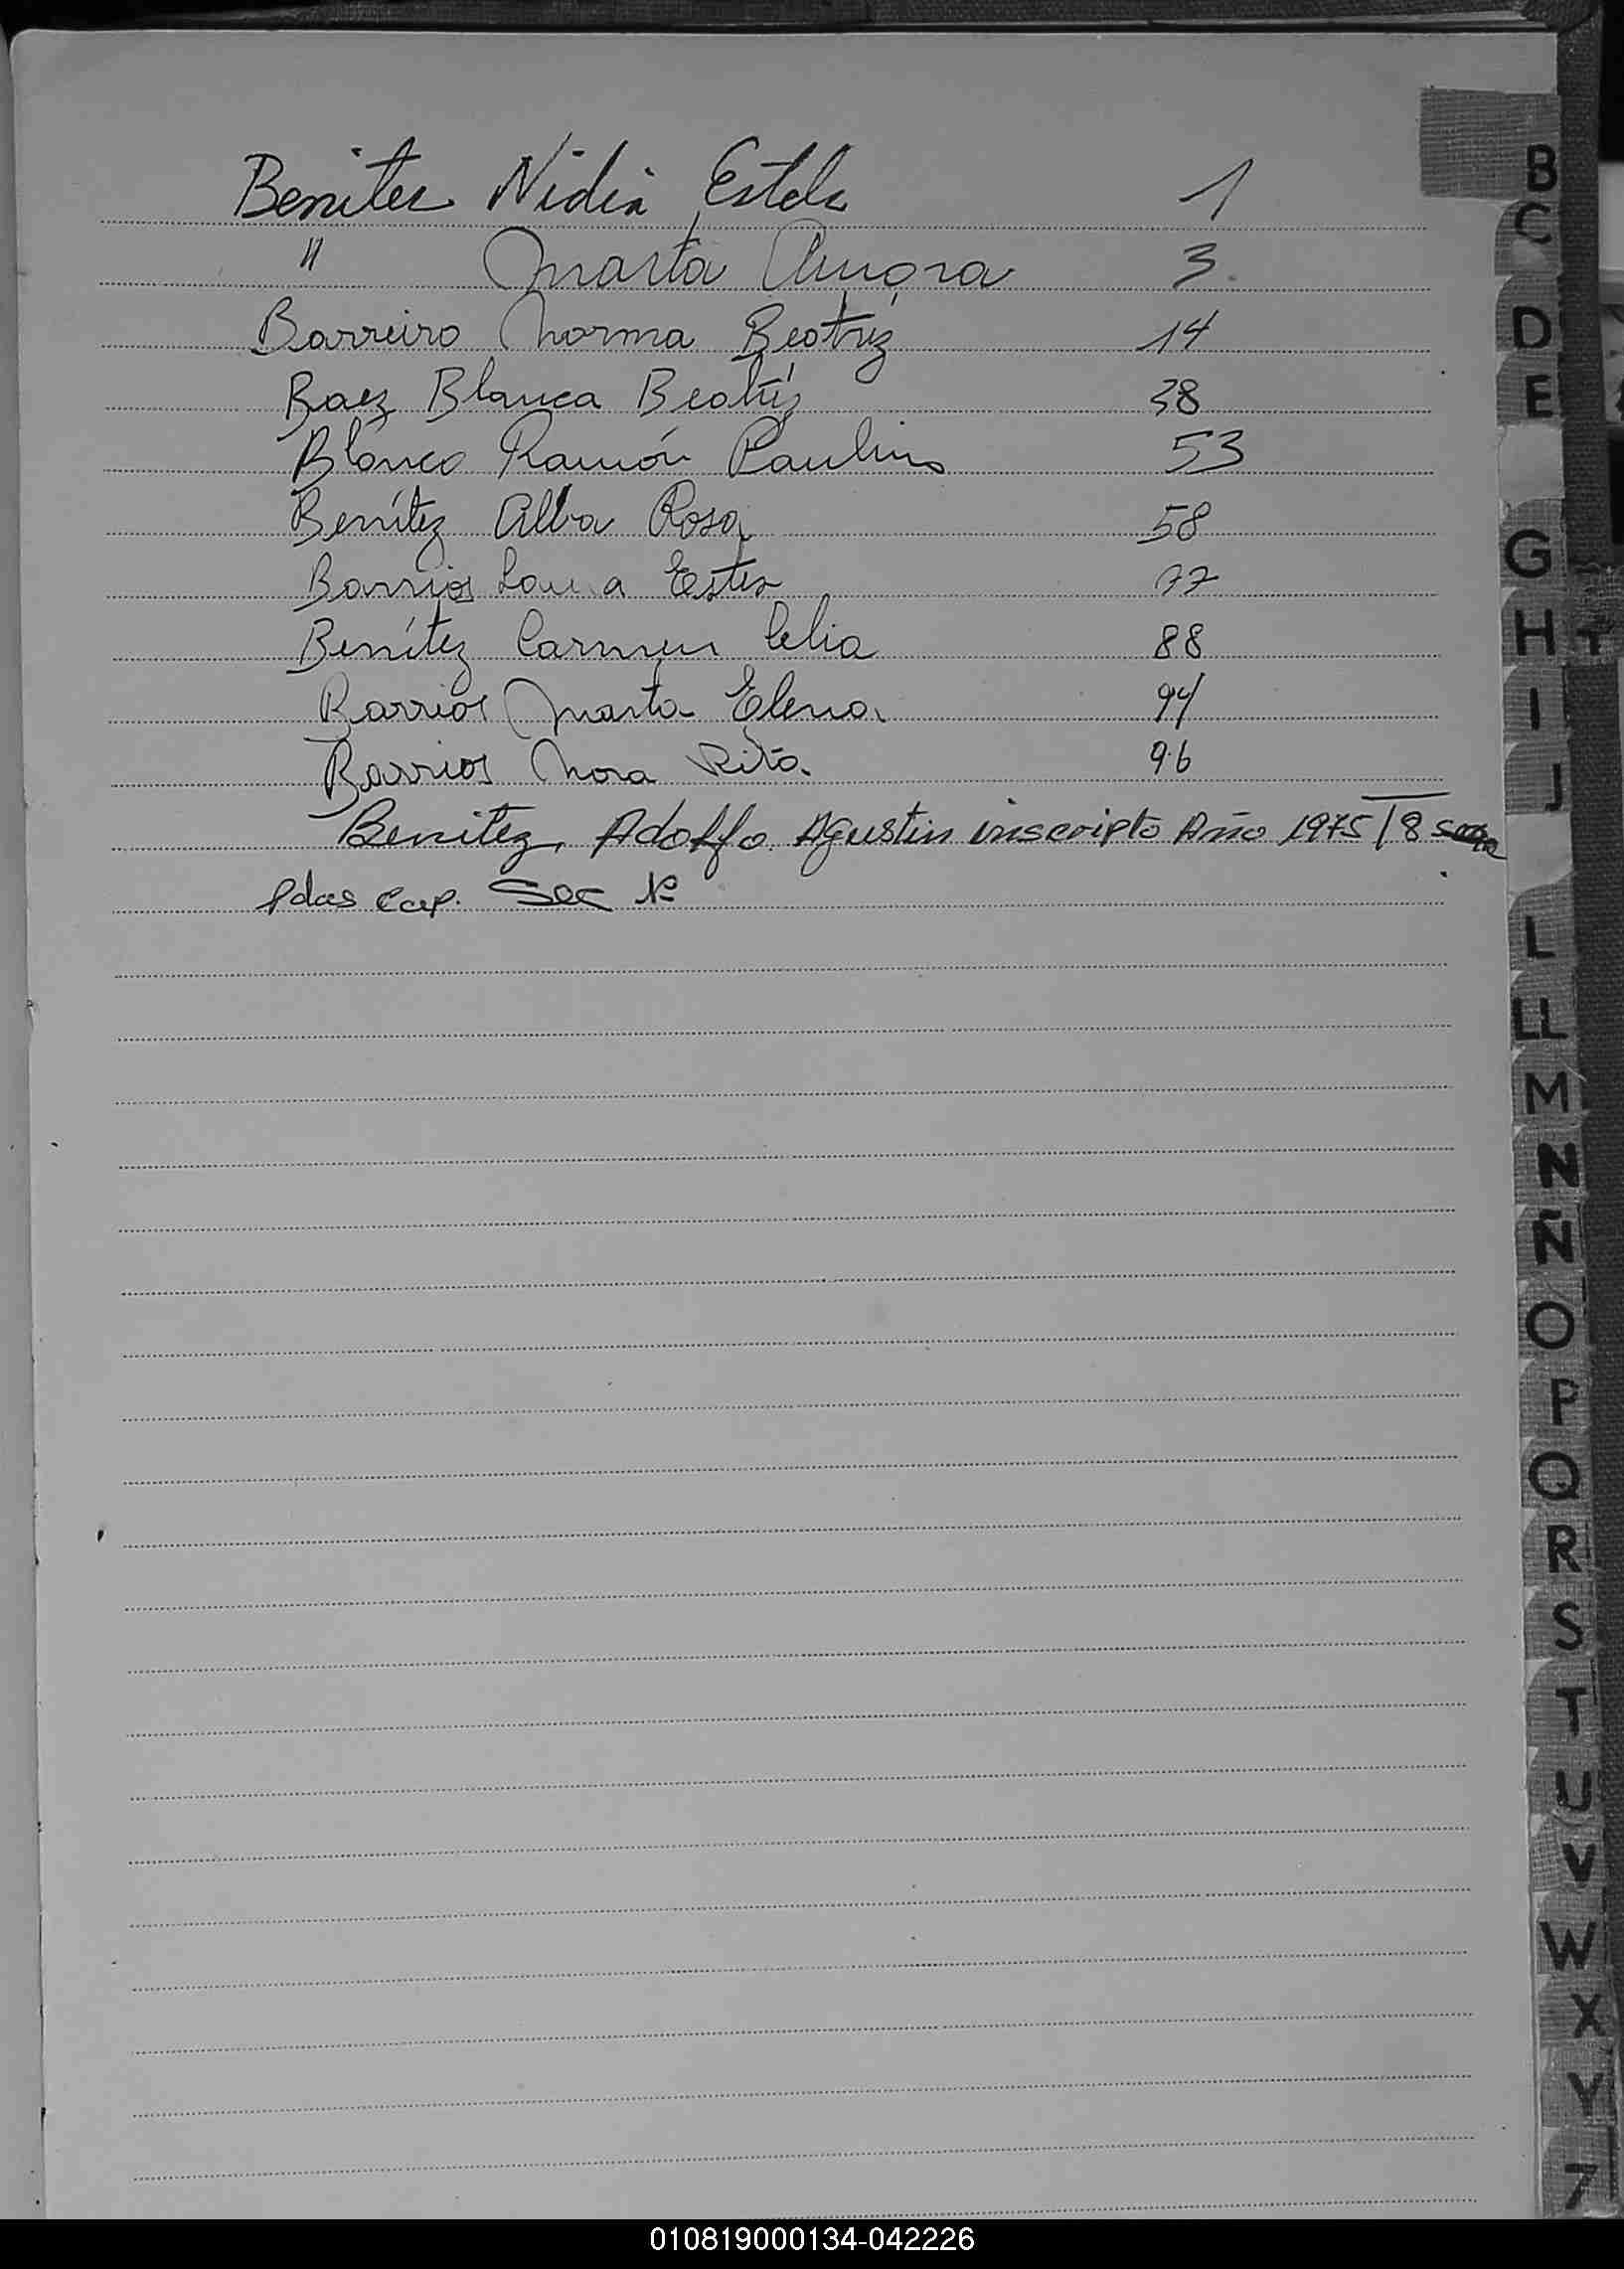 Benitez Nidia Estela 1
" Marta Aurora 3
Barreiro Norma Beatriz 14
Baez Blanca Beatriz 38
Blanco Ramón Paulino 53
Benítez Alba Rosa 58
Barrios Laura Ester 77
Benítez Carmen Celia 88
Barrios Marta Elena 94
Barrios Nora Rita. 96
Benitez, Adolfo Agustin inscripto Año 1975
Pdas Cap. Sec Nº
B
C
D
E
G
H
I
J
L
LL
M
N
Ñ
O
P
Q
R
S
T
U
V
W
X
Y
Z
010819000134-042226